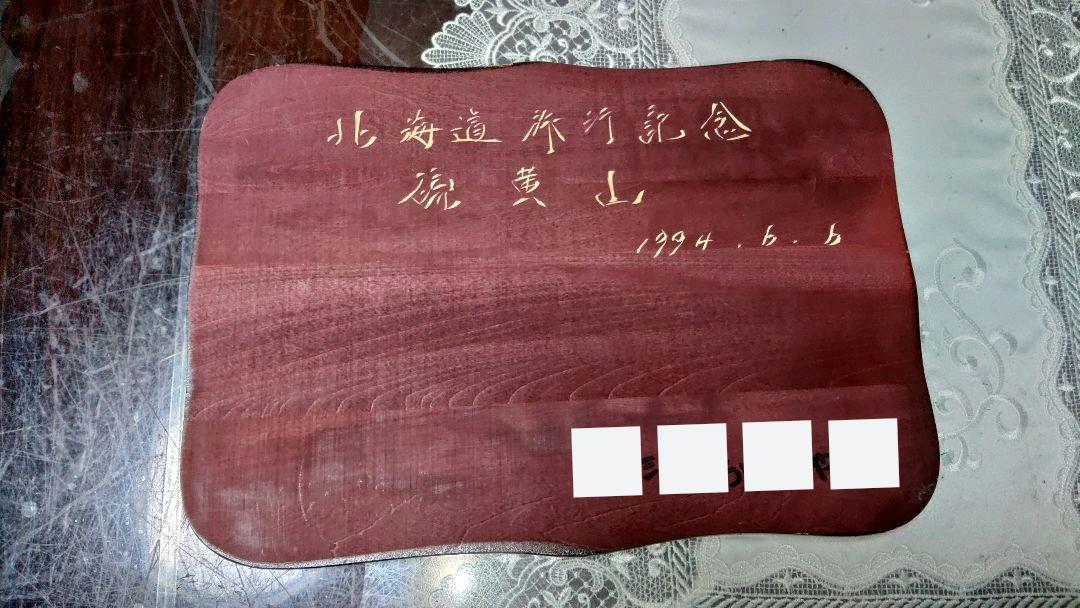 北海道旅行記念
硫黄山
1994.6.6